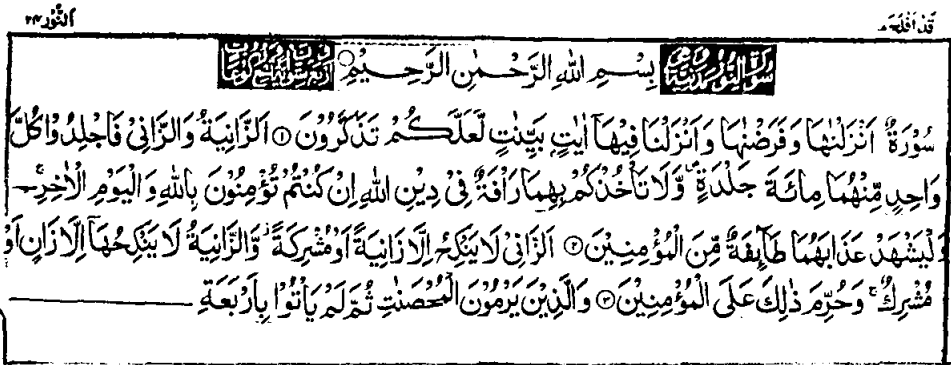 قد افلح ۱۸ النور ۲۴
سورة النور مدنية بِسْمِ اللهِ الرَّحْمٰنِ الرَّحِيْمِ
سُوْرَةٌ اَنْزَلْنٰهَا وَفَرَضْنٰهَا وَاَنْزَلْنَا فِيْهَآ اٰيٰتٍۭ بَيِّنٰتٍ لَّعَلَّكُمْ تَذَكَّرُوْنَ ۝۱ اَلزَّانِيَةُ وَالزَّانِيْ فَاجْلِدُوْا كُلَّ
وَاحِدٍ مِّنْهُمَا مِائَةَ جَلْدَةٍ ۪ وَّلَا تَاْخُذْكُمْ بِهِمَا رَاْفَةٌ فِيْ دِيْنِ اللهِ اِنْ كُنْتُمْ تُؤْمِنُوْنَ بِاللهِ وَالْيَوْمِ الْاٰخِرِ ۚ
وَلْيَشْهَدْ عَذَابَهُمَا طَآئِفَةٌ مِّنَ الْمُؤْمِنِيْنَ ۝۲ اَلزَّانِيْ لَا يَنْكِحُ اِلَّا زَانِيَةً اَوْ مُشْرِكَةً ۡ وَّالزَّانِيَةُ لَا يَنْكِحُهَآ اِلَّا زَانٍ اَوْ
مُشْرِكٌ ۚ وَحُرِّمَ ذٰلِكَ عَلَى الْمُؤْمِنِيْنَ ۝۳ وَالَّذِيْنَ يَرْمُوْنَ الْمُحْصَنٰتِ ثُمَّ لَمْ يَاْتُوْا بِاَرْبَعَةِ